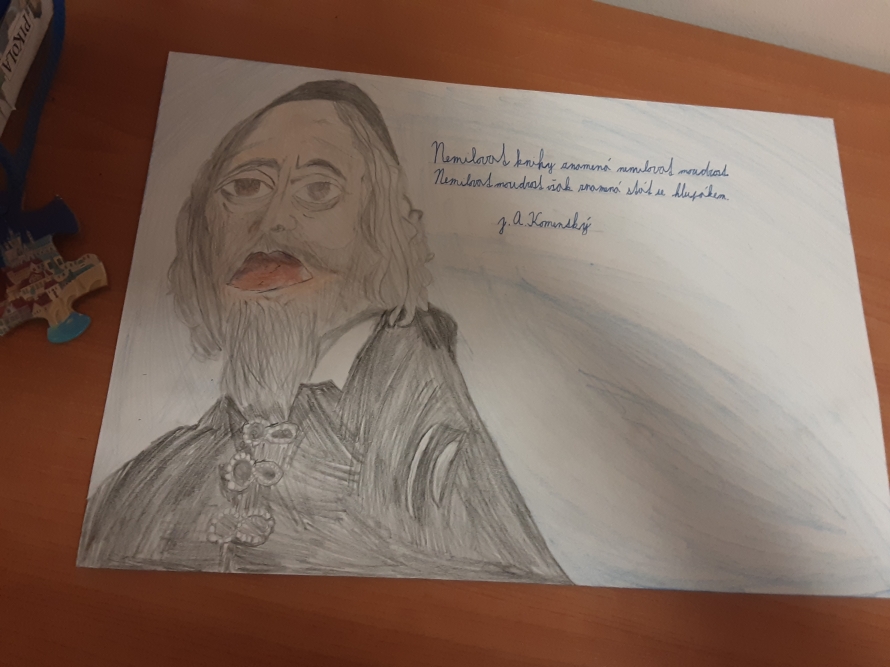 PIKOLA
Nemilovat knihy znamená nemilovat moudrost
Nemilovat moudrost však znamená stát se hlupákem.
J. A. Komenský